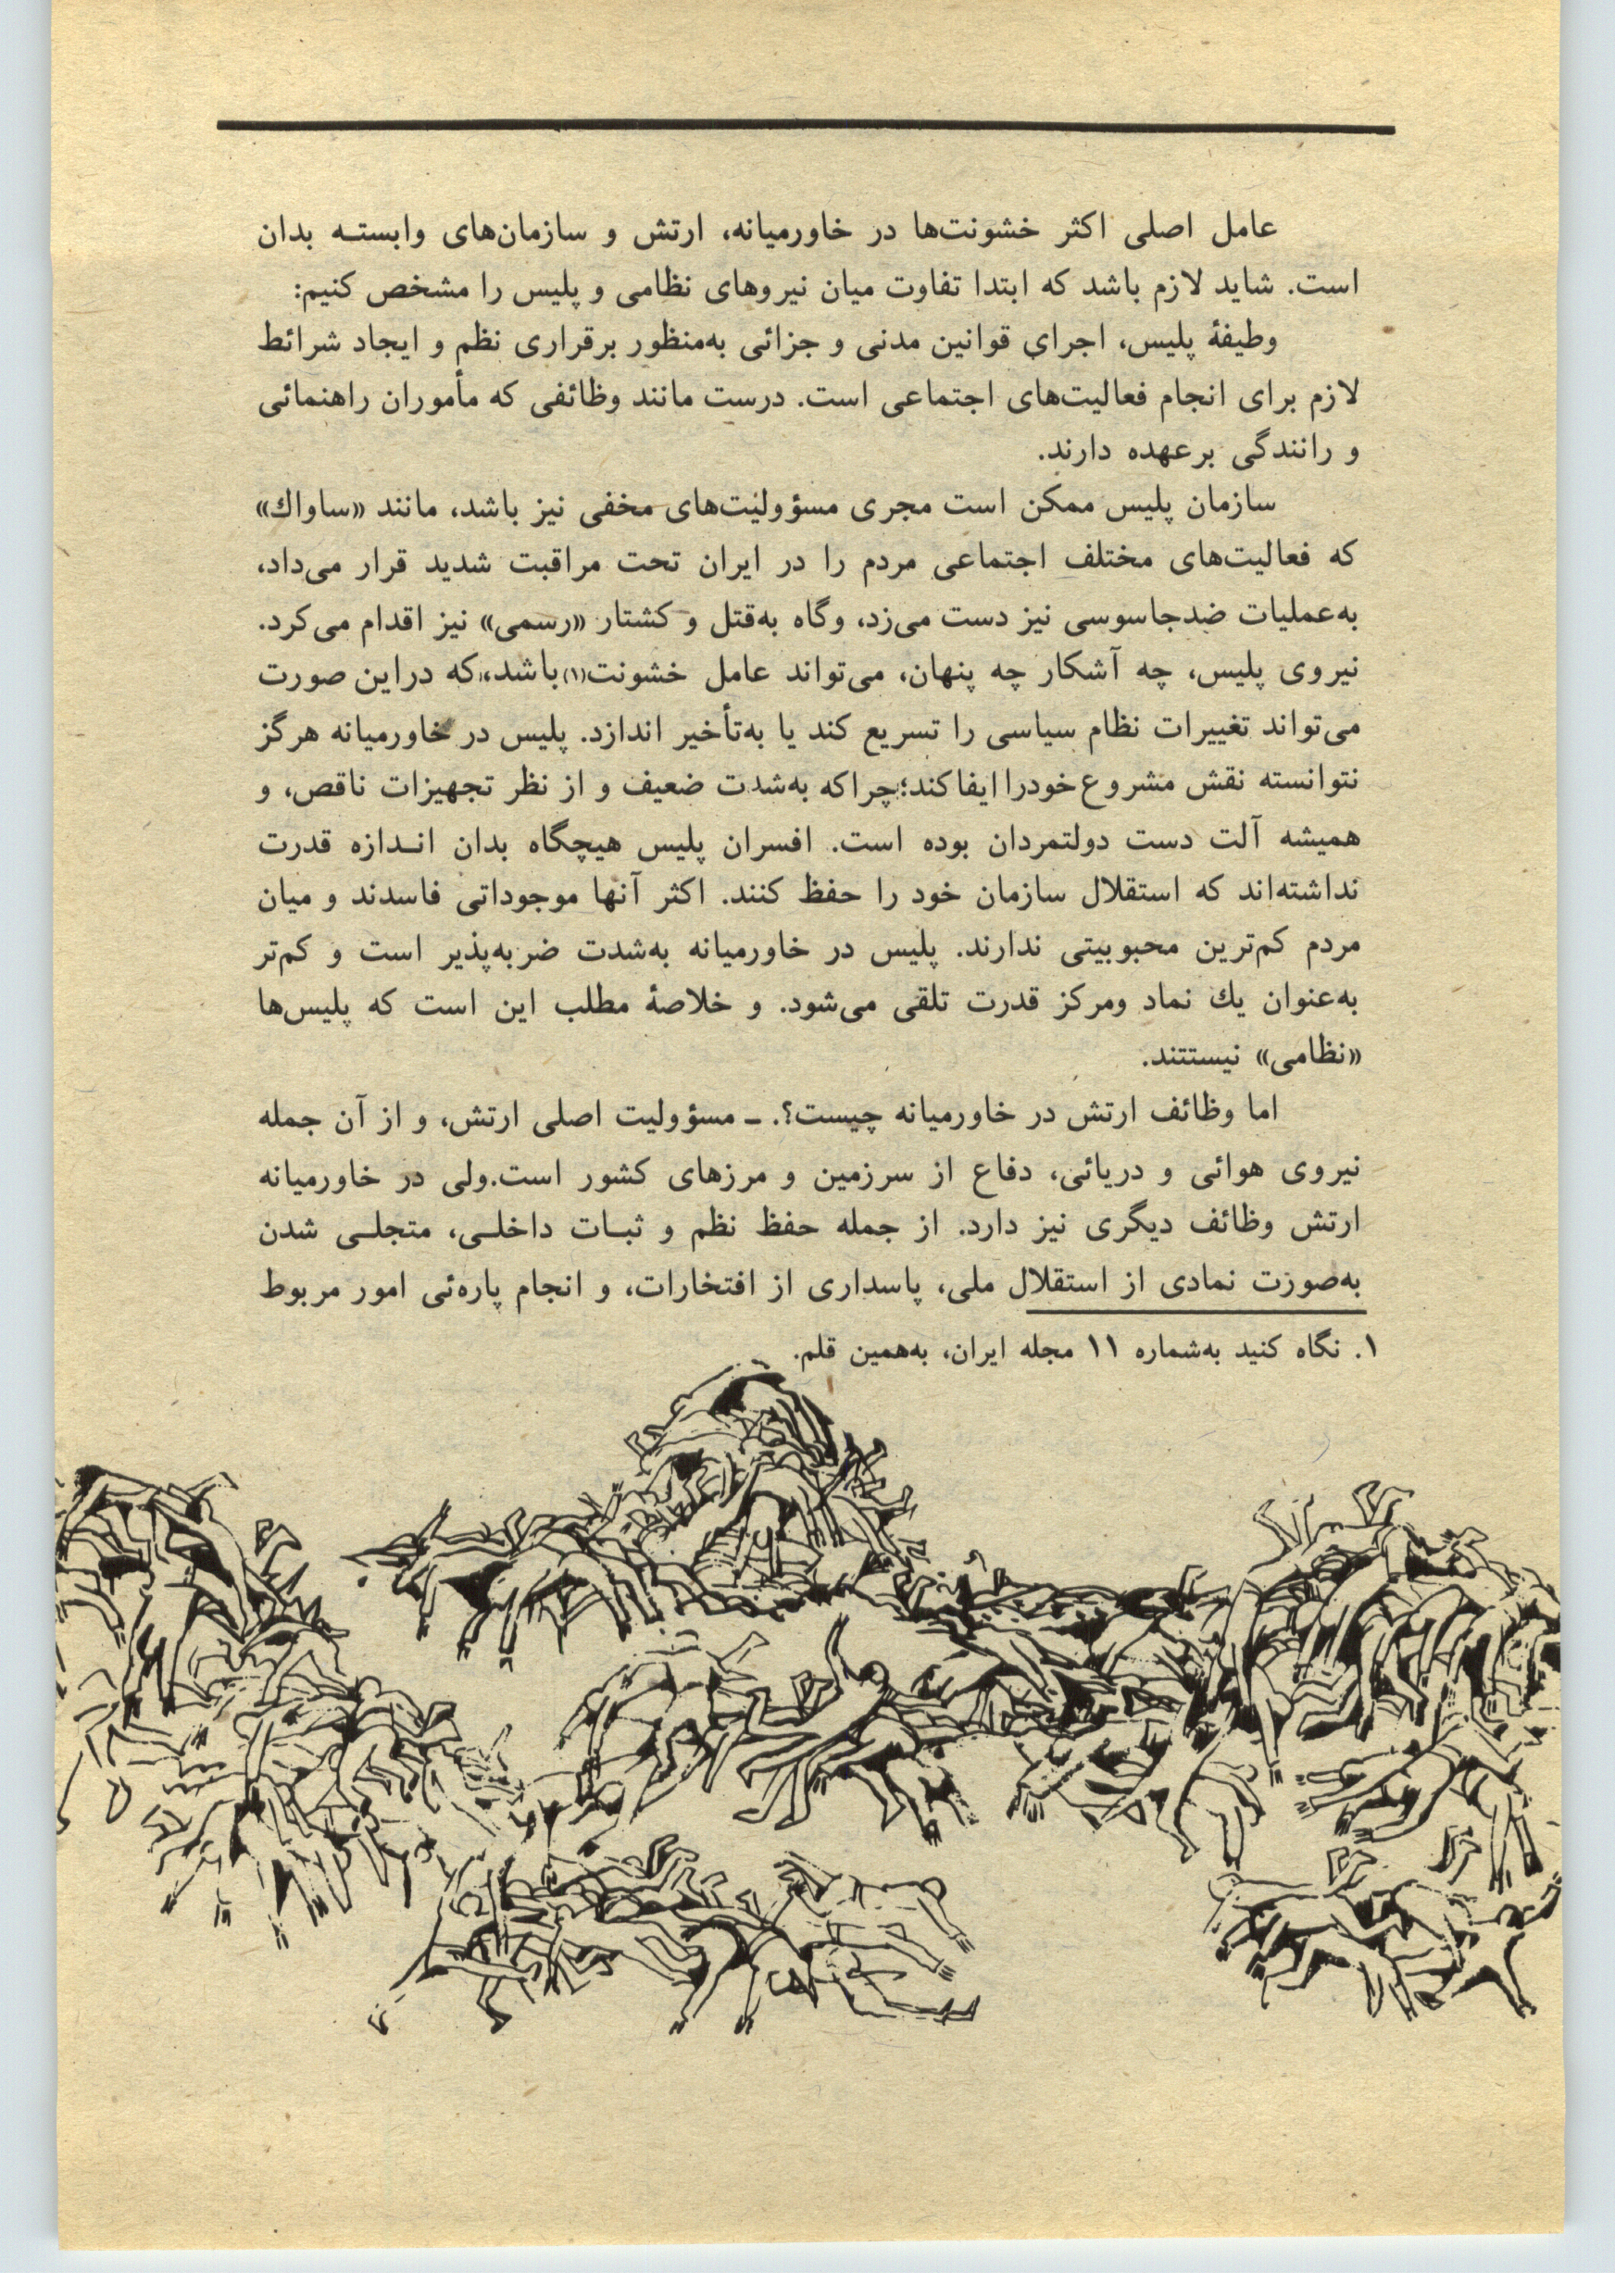 عامل اصلی اکثر خشونت‌ها در خاورمیانه، ارتش و سازمان‌های وابسته بدان
است. شاید لازم باشد که ابتدا تفاوت میان نیروهای نظامی و پلیس را مشخص کنیم:
وظیفهٔ پلیس، اجرای قوانین مدنی و جزائی به‌منظور برقراری نظم و ایجاد شرائط
لازم برای انجام فعالیت‌های اجتماعی است. درست مانند وظائفی که مأموران راهنمائی
و رانندگی برعهده دارند.
سازمان پلیس ممکن است مجری مسؤولیت‌های مخفی نیز باشد، مانند «ساواك»
که فعالیت‌های مختلف اجتماعی مردم را در ایران تحت مراقبت شدید قرار می‌داد،
به‌عملیات ضدجاسوسی نیز دست می‌زد، وگاه به‌قتل و کشتار «رسمی» نیز اقدام می‌کرد.
نیروی پلیس، چه آشکار چه پنهان، می‌تواند عامل خشونت(۱) باشد، که دراین صورت
می‌تواند تغییرات نظام سیاسی را تسریع کند یا به‌تأخیر اندازد. پلیس در خاورمیانه هرگز
نتوانسته نقش مشروع خودرا ایفاکند؛ چراکه به‌شدت ضعیف و از نظر تجهیزات ناقص، و
همیشه آلت دست دولتمردان بوده است. افسران پلیس هیچگاه بدان اندازه قدرت
نداشته‌اند که استقلال سازمان خود را حفظ کنند. اکثر آنها موجوداتی فاسدند و میان
مردم کم‌ترین محبوبیتی ندارند. پلیس در خاورمیانه به‌شدت ضربه‌پذیر است و کم‌تر
به‌عنوان یك نماد ومرکز قدرت تلقی می‌شود. و خلاصهٔ مطلب این است که پلیس‌ها
«نظامی» نیستتند.
اما وظائف ارتش در خاورمیانه چیست؟. ـ مسؤولیت اصلی ارتش، و از آن جمله
نیروی هوائی و دریائی، دفاع از سرزمین و مرزهای کشور است.ولی در خاورمیانه
ارتش وظائف دیگری نیز دارد. از جمله حفظ نظم و ثبات داخلی، متجلی شدن
به‌صورت نمادی از استقلال ملی، پاسداری از افتخارات، و انجام پاره‌ئی امور مربوط
۱. نگاه کنید به‌شماره ۱۱ مجله ایران، به‌همین قلم.